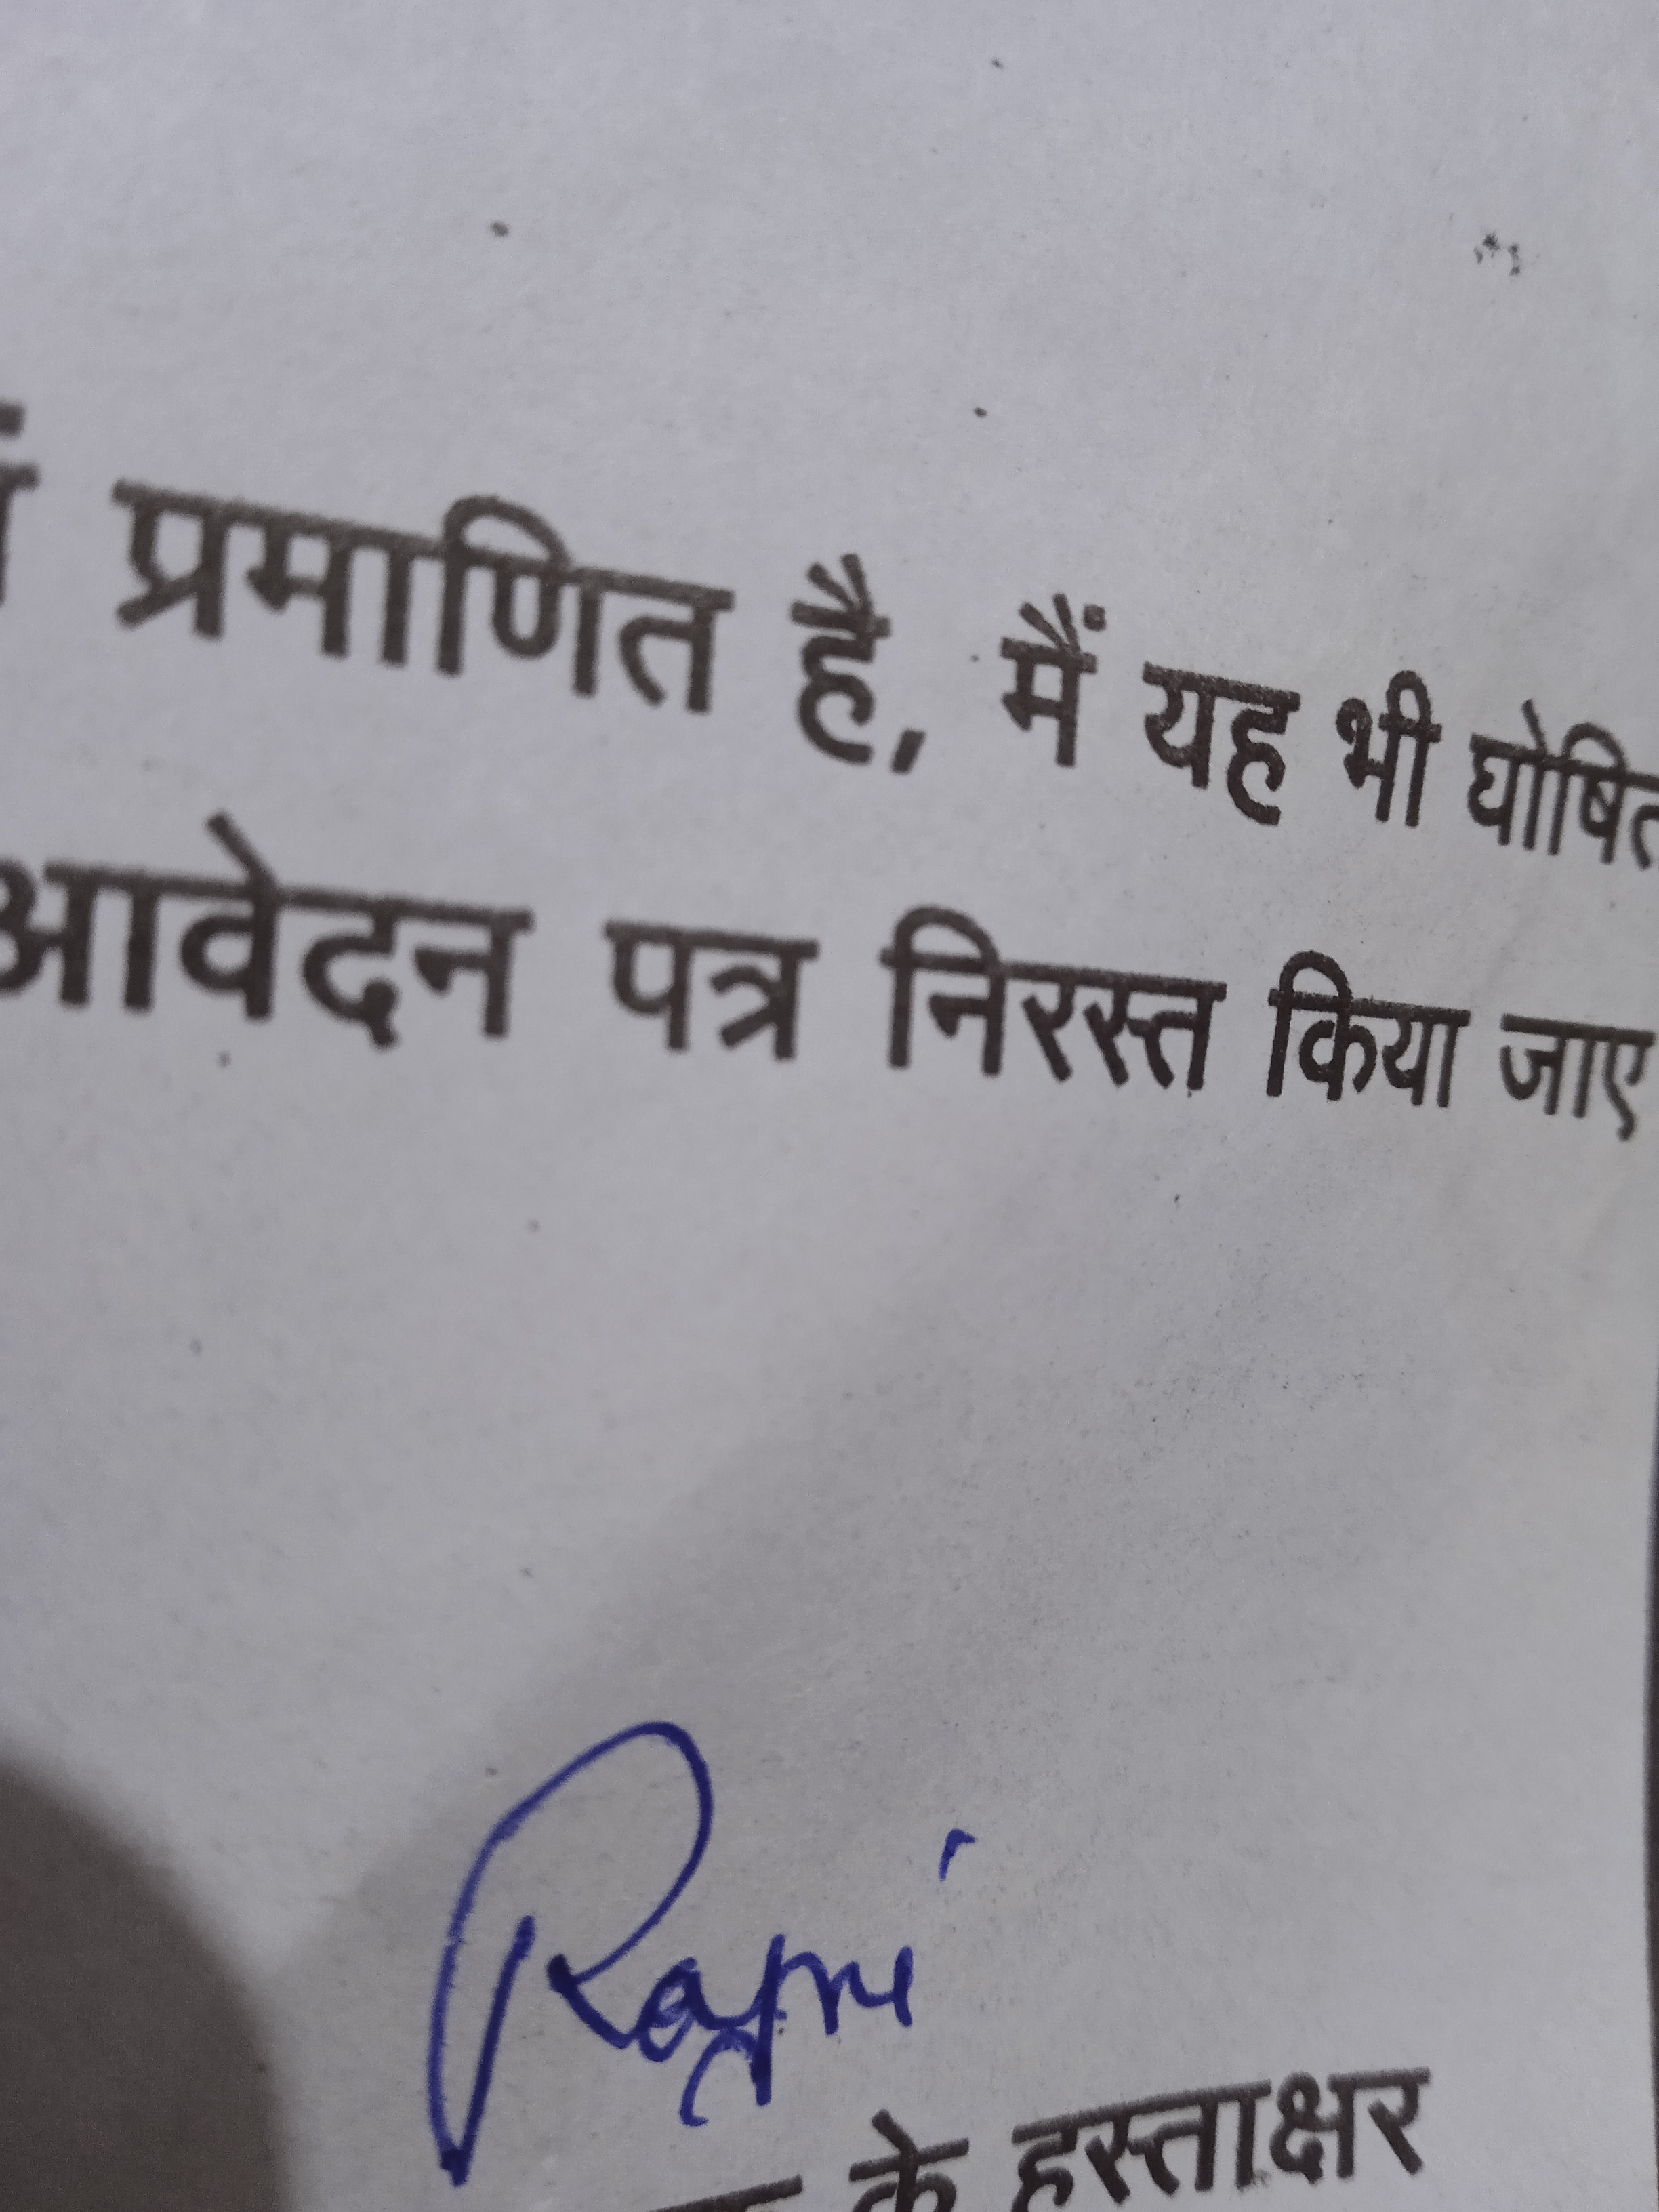 प्रमाणित है, मैं यह भी घोषित
आवेदन पत्र निरस्त किया जाए
Rajni
के हस्ताक्षर